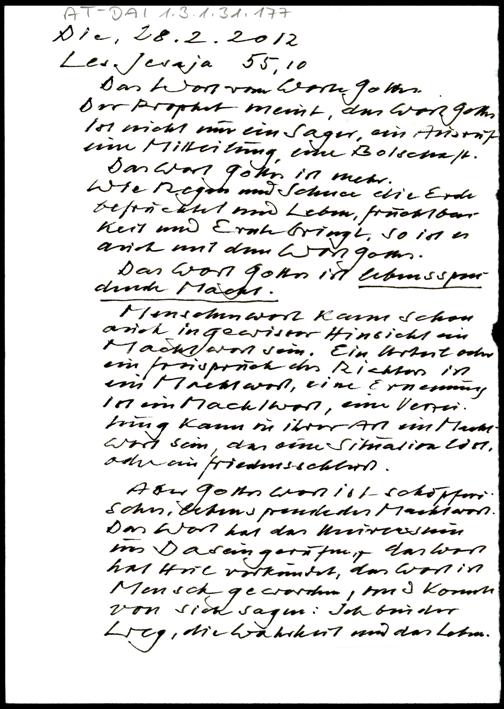 AT-DAI 1.3.1.31.177
Die, 28.2.2012
Les. Jesaja 55,10
Das Wort vom Worte Gottes.
Der Prophet meint, das Wort Gottes
ist nicht nur ein Sager, ein Ausruf
eine Mitteilung, eine Botschaft.
Das Wort Gottes ist mehr.
Wie Regen und Schnee die Erde
befruchtet und Leben, fruchtbar
keit und Ernte bringt, so ist es
auch mit dem Wort Gottes.
Das Wort Gottes ist lebensspen
dende Macht.
Menschenwort kann schon
auch in gewisser Hinsicht ein
Machtwort sein. Ein Urteil oder
ein freispruch des Richters ist
ein Machtwort, eine Ernennung
ist ein Machtwort, eine Verzei-
hung kann in ihrer Art ein Macht
wort sein, das eine Situation löst,
oder ein friedensschluß.
Aber Gottes Wort ist schöpferi-
sches, lebenspendendes Machtwort.
Das Wort hat das Universum
ins Dasein gerufen, das Wort
hat Heil verkündet, das Wort ist
Mensch geworden, und konnte
von sich sagen: Ich bin der
Weg, die Wahrheit und das Leben.